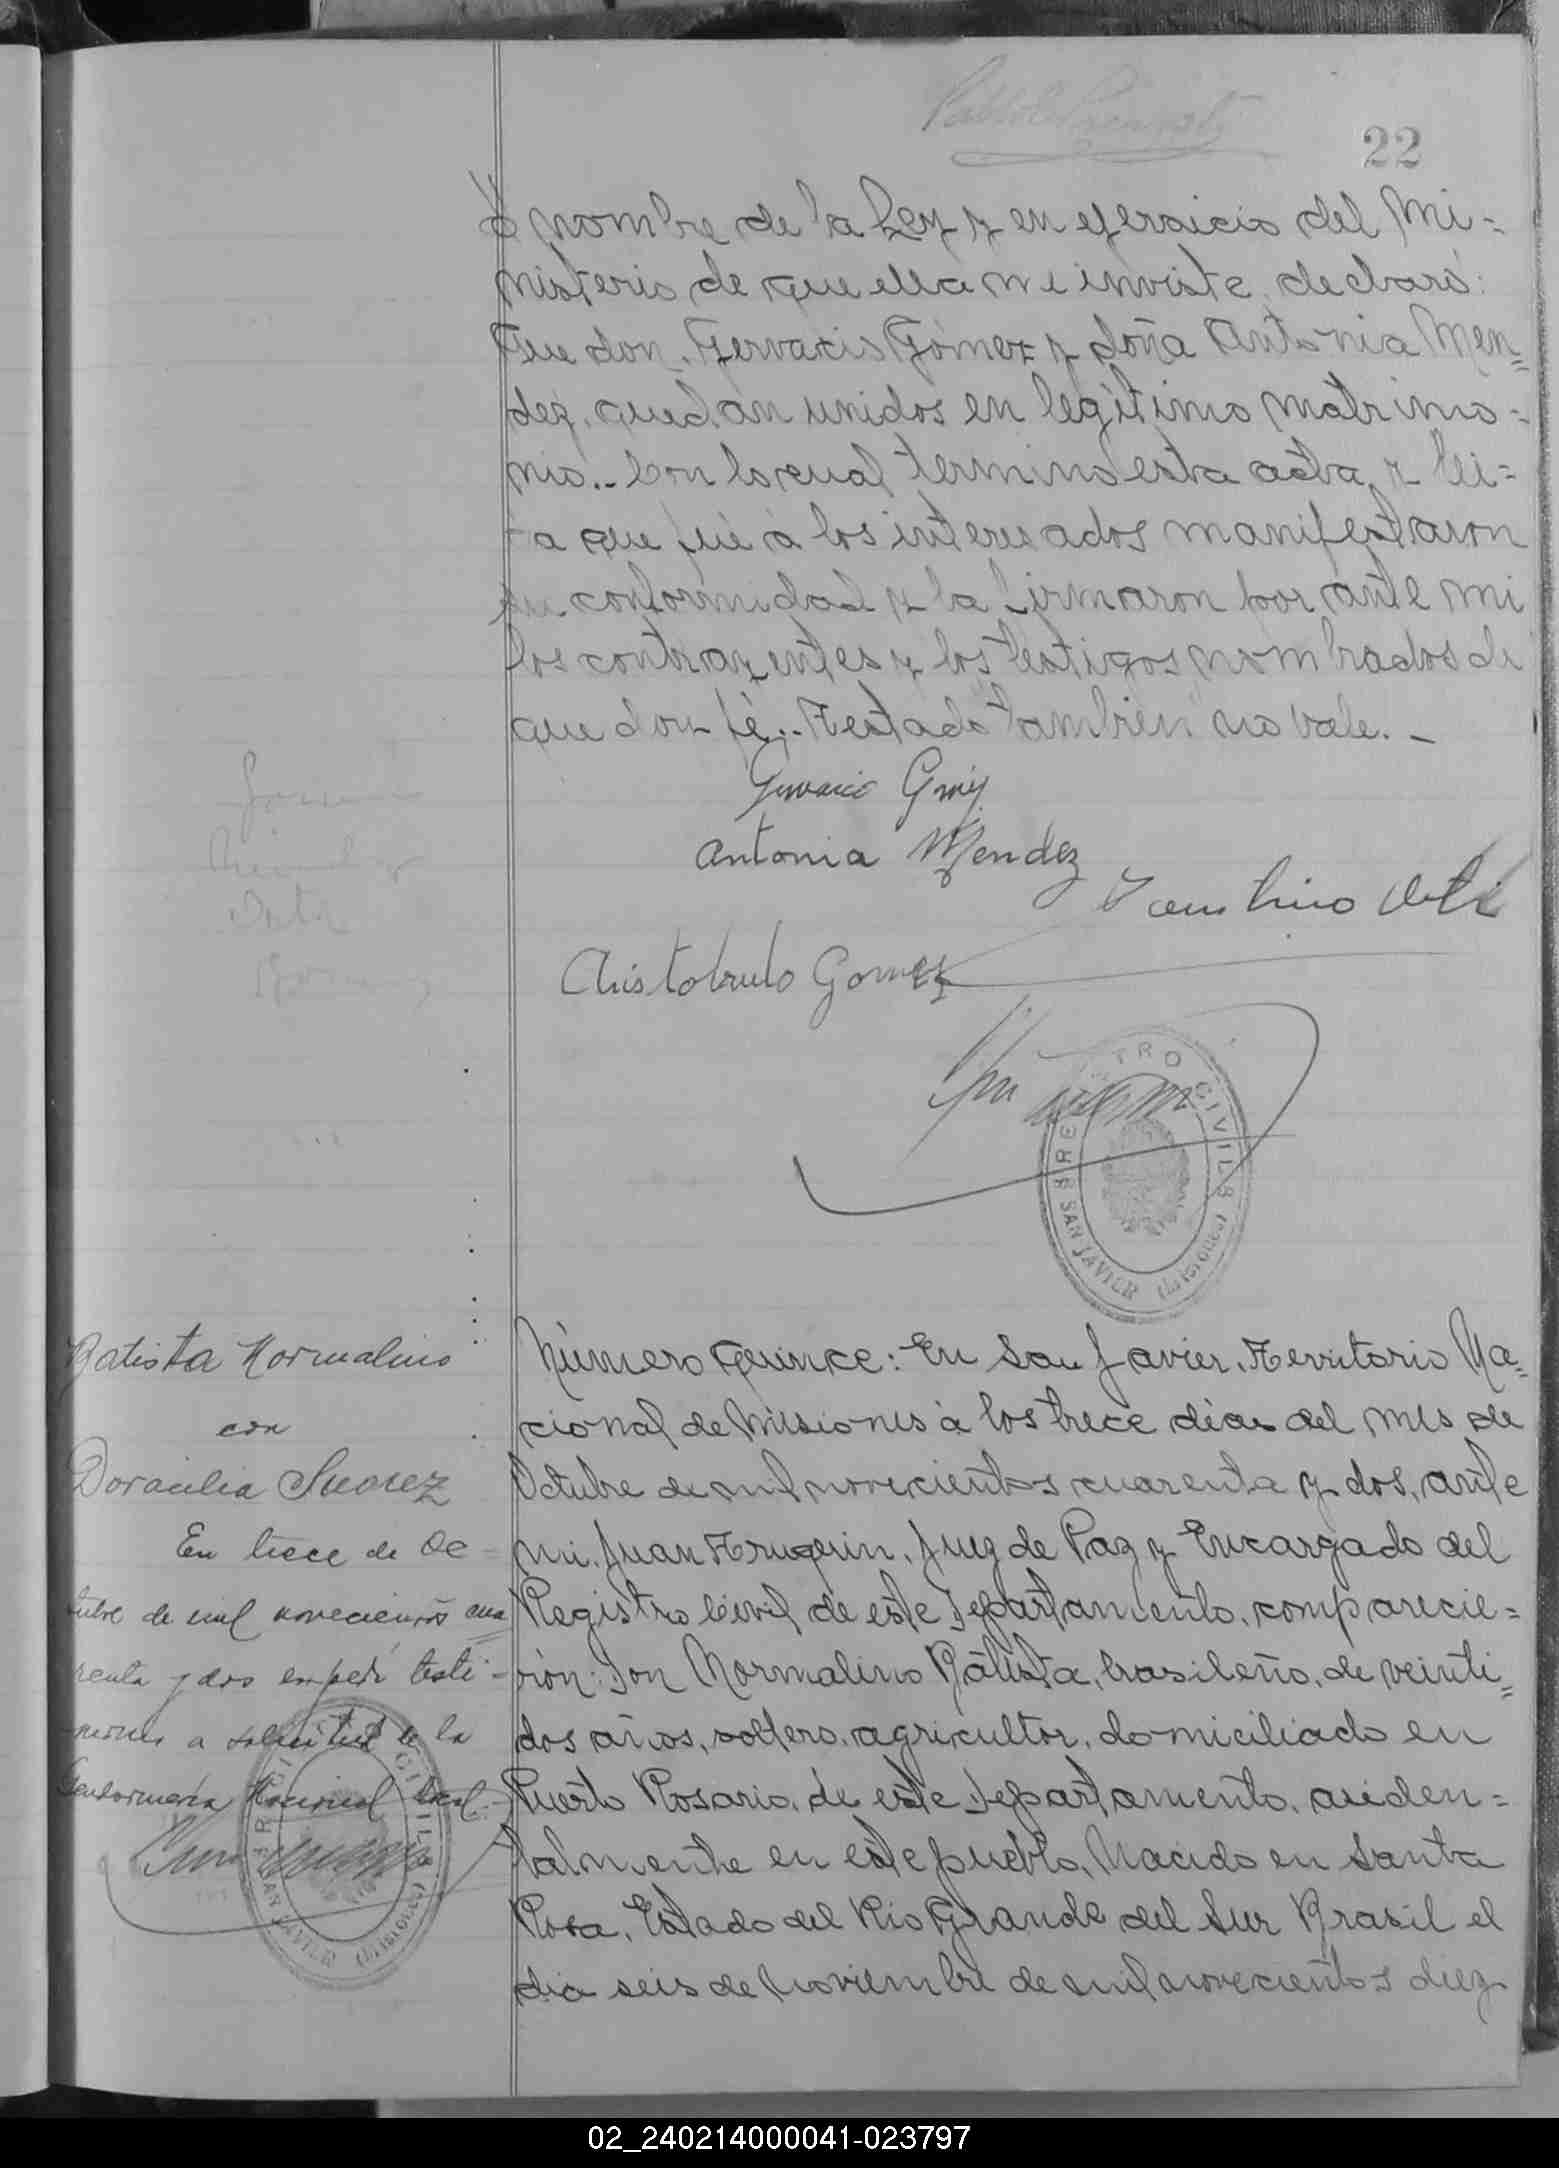 22
á nombre de la Ley y en ejercicio del Mi=
nisterio de que ella me inviste, declaro:
Que don, Gervacio Gómez y doña Antonia Men=
dez, quedan unidos en legítimo matrimo=
nio.- Con lo cual terminó esta acta, y lei=
da que fué á los interesados manifestaron
su conformidad y la firmaron por ante mi
los contrayentes y los testigos nombrados de
que doy fé.- Testado "tambien" no vale.-
Gervacio Gomez
Antonia Mendez
Faustino
Aristobulo Gomez
REGISTRO CIVIL
SAN JAVIER (Misiones)
Batista Normalino
con
Doracilia Suarez
En trece de Oc-
tubre de mil novecientos cua
renta y dos expedí testi-
monio a solicitud de la
Gendarmeria Nacional local.-
CIVIL
SAN JAVIER (Misiones)
Número Quince: En San Javier, Territorio Na=
cional de Misiones á los trece dias del mes de
Octubre de mil novecientos cuarenta y dos, ante
mi, Juan Truquin, Juez de Paz y Encargado del
Registro Civil de este Departamento, comparecie=
rón: Don Normalino Bátista, brasileño, de veinti=
dos años, soltero, agricultor, domiciliado en
Puerto Rosario, de este Departamento, acciden=
talmente en este pueblo, Nacido en Santa
Rosa, Estado del Rio Grande del Sur Brasil el
dia seis de Noviembre de mil novecientos diez
02_240214000041-023797